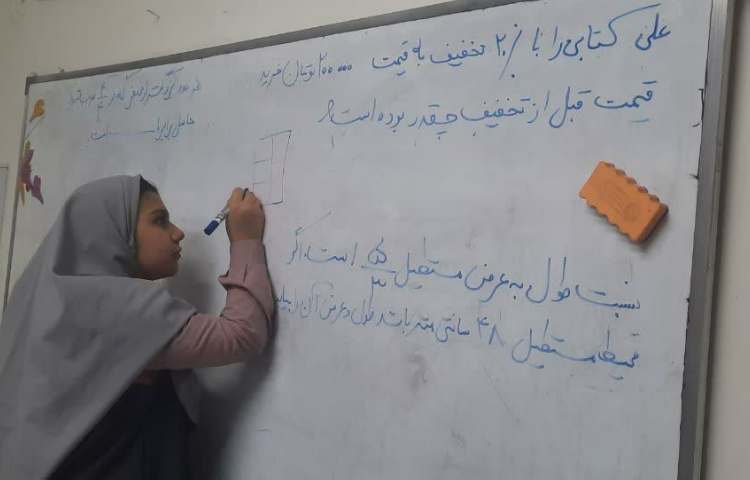 علی کتابی را با ۲۰٪ تخفیف به قیمت ۲۰۰۰۰۰ تومان خرید
قیمت قبل از تخفیف چقدر بوده است؟
حاصل برابر است
نسبت طول به عرض مستطیل ۵/۳ است. اگر
محیط مستطیل ۴۸ سانتی متر باشد طول و عرض آن را بیابید